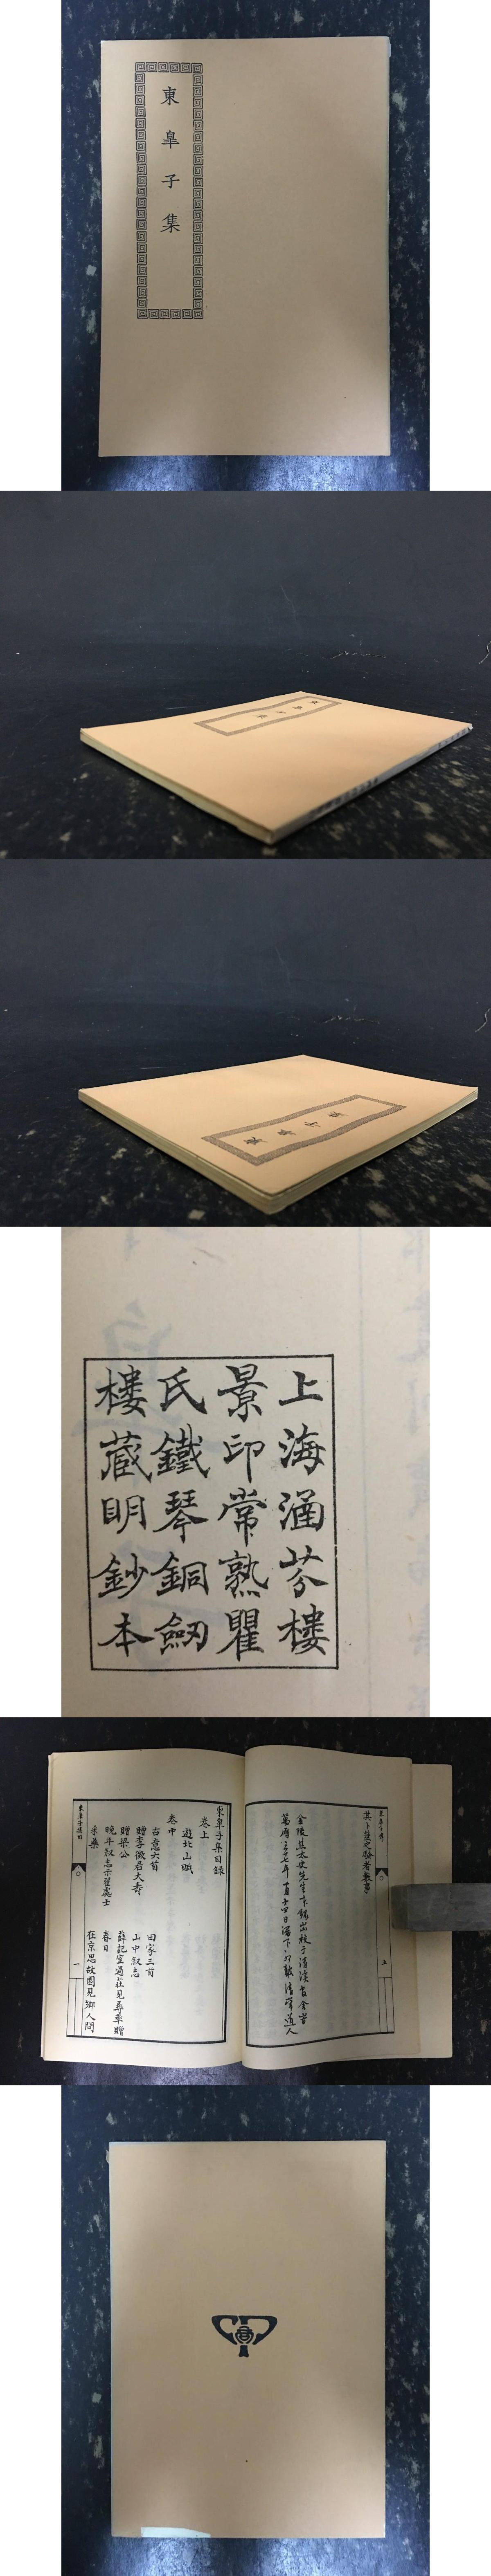 東皐子集
上海涵芬樓
景印常熟瞿
氏鐵琴銅劒
樓藏明鈔本
其卜筮之驗者數事
金陵焦太史先生本錄出校于清溪書舍皆
東皐子集目錄
卷上
遊北山賦
卷中
古意六首
田家三首
贈李徵君大壽
山中叙志
贈梁公
薛記室過莊見尋率贈
晚年叙志示翟處士
春日
采藥
在京思故園見鄉人問
東皐子集目
一